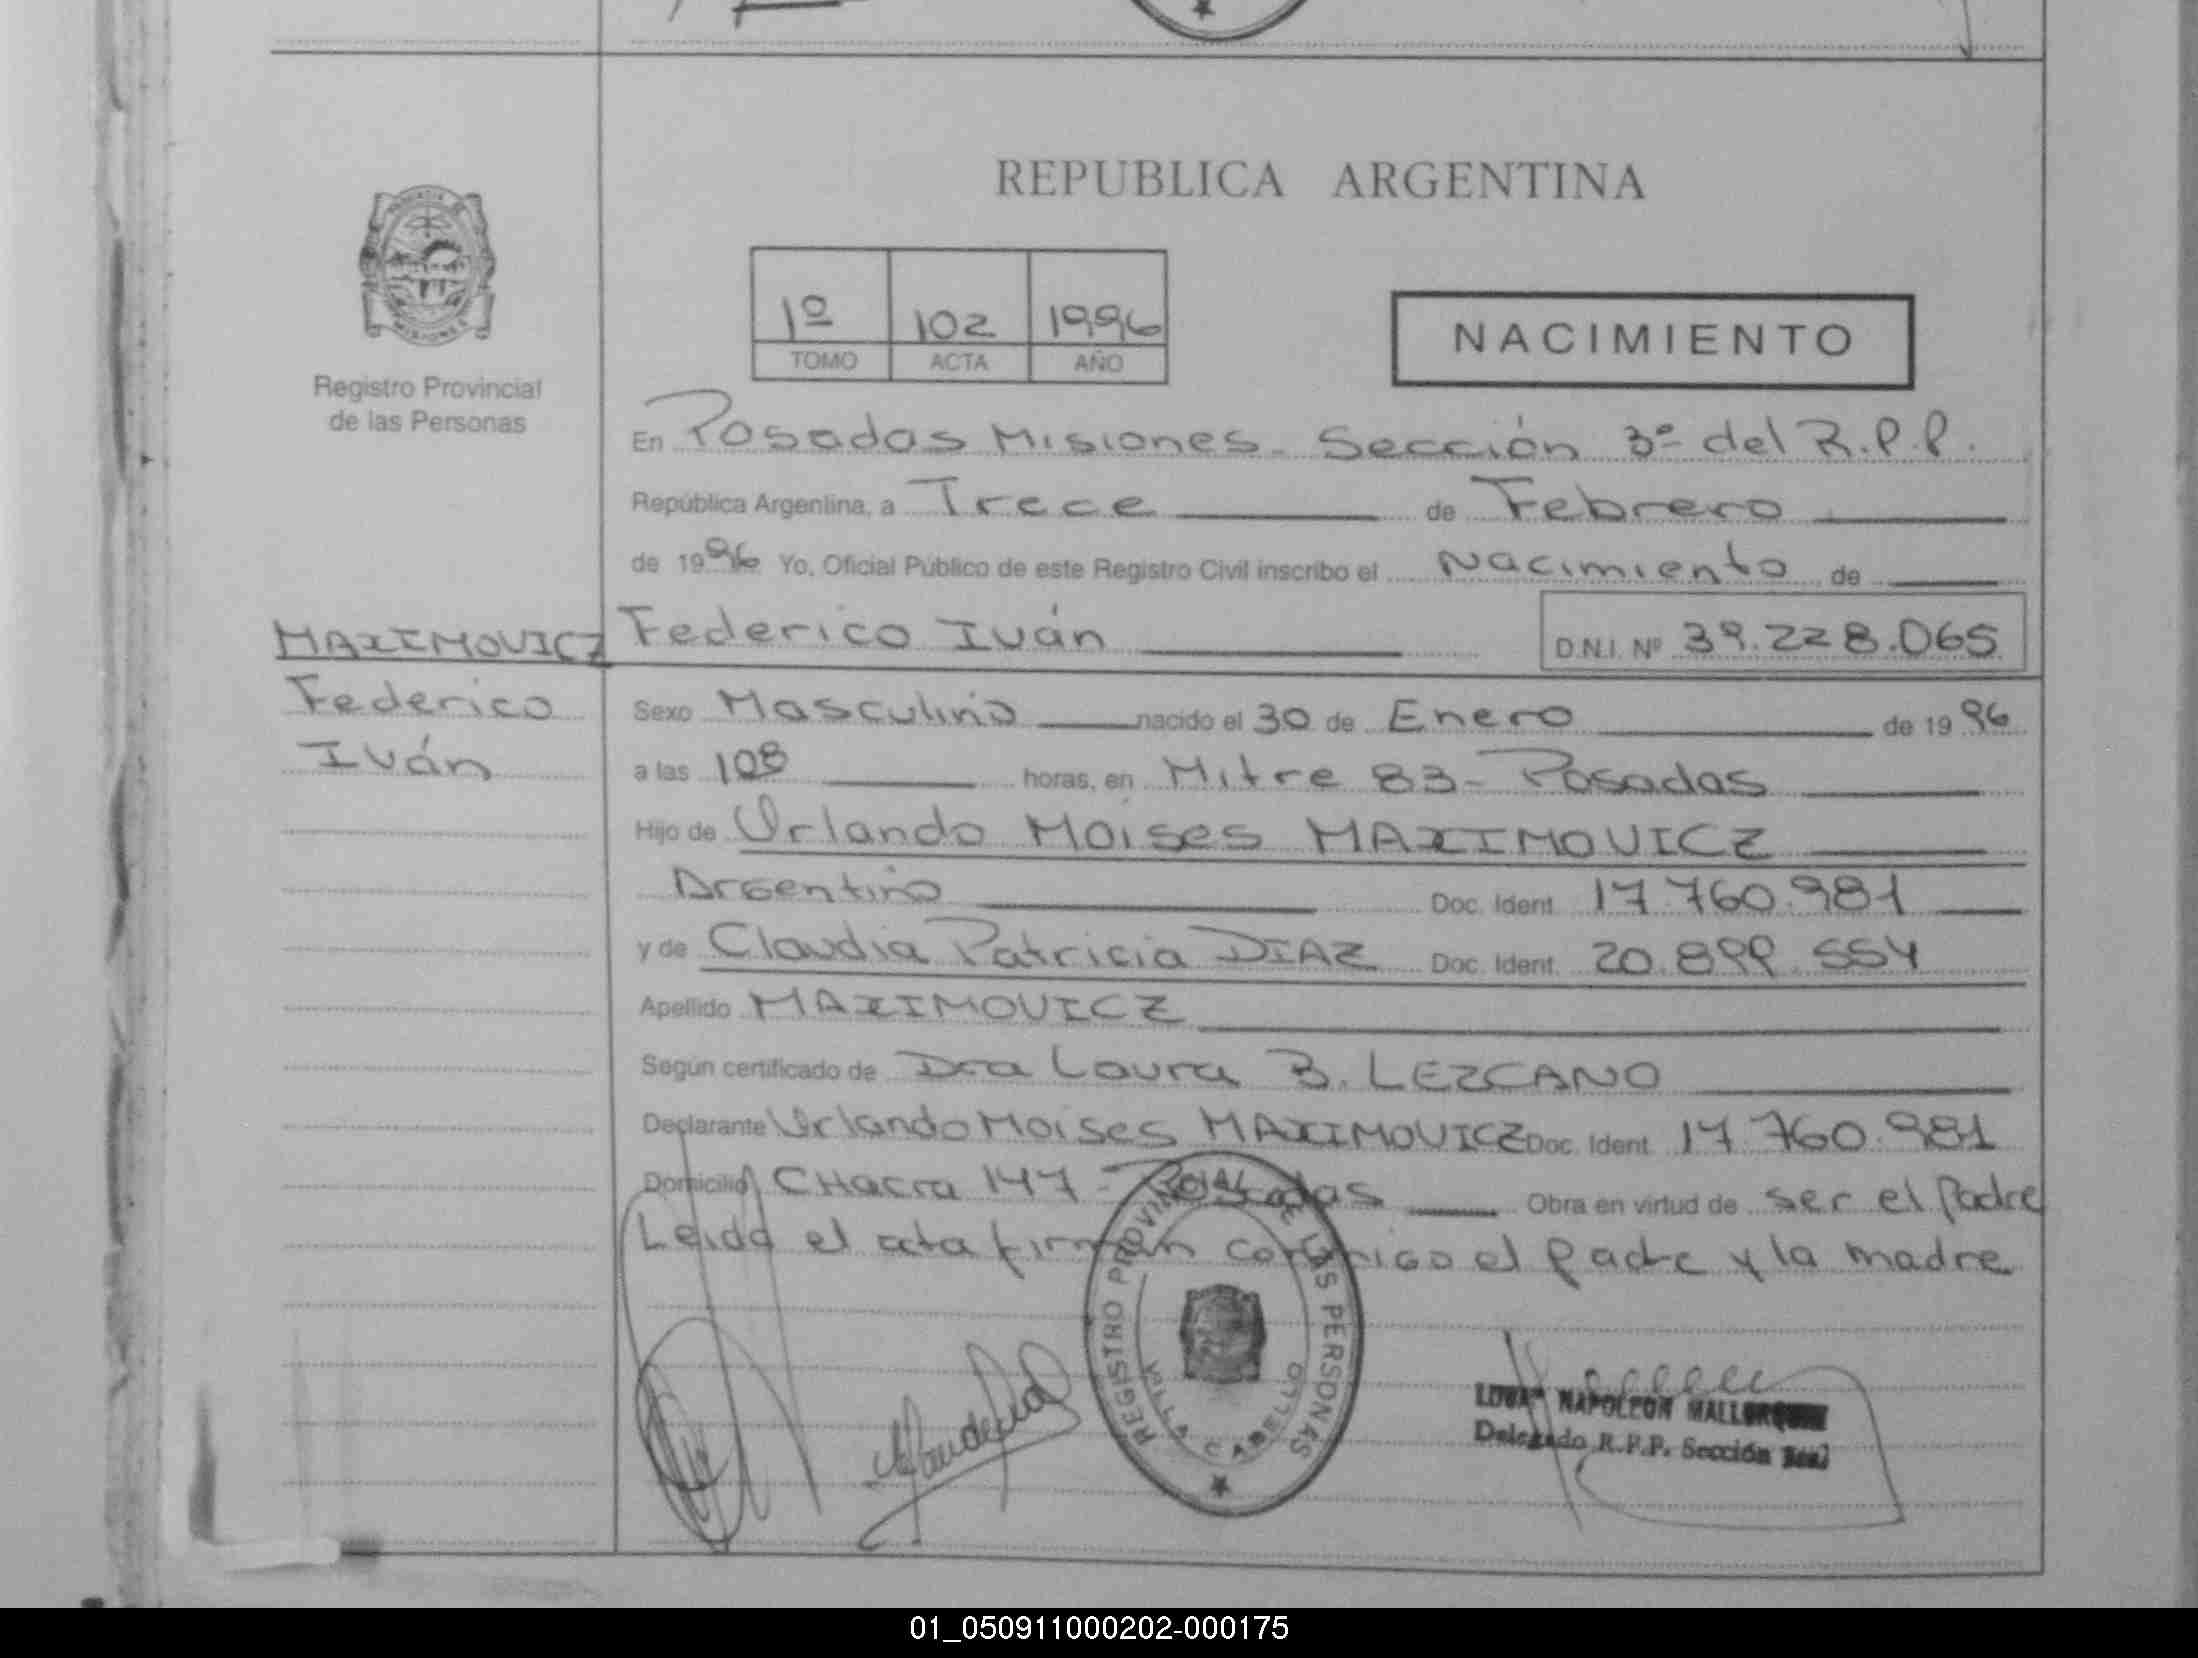 REPUBLICA ARGENTINA
Registro Provincial
de las Personas
1º 102 1996
TOMO ACTA AÑO
NACIMIENTO
En Posadas Misiones - Sección 3º del R.P.P.
República Argentina, a Trece de Febrero
de 1996 Yo, Oficial Público de este Registro Civil inscribo el Nacimiento de
MAXIMOVICZ
Federico
Iván
Federico Iván D.N.I. Nº 39.228.065
Sexo Masculino nacido el 30 de Enero de 1996
a las horas, en Mitre 83 - Posadas
Hijo de Orlando Moises MAXIMOVICZ
Argentino Doc. Ident. 17.760.981
y de Claudia Patricia DIAZ Doc. Ident. 20.899.554
Apellido MAXIMOVICZ
Según certificado de Dra Laura B. LEZCANO
Declarante Orlando Moises MAXIMOVICZ Doc. Ident. 17.760.981
Domicilio CHacra 147 - Posadas Obra en virtud de ser el Padre
Leida el acta firman conmigo el padre y la madre
REGISTRO PROVINCIAL DE LAS PERSONAS
VILLA CABELLO
NAPOLEON
Delegado R.P.P. Sección
01_050911000202-000175